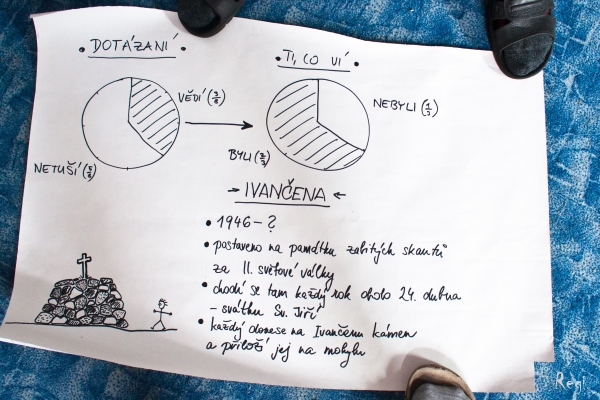 • DOTÁZANÍ •
• TI, CO VÍ •
VĚDÍ (3/8)
NEBYLI (1/3)
NETUŠÍ (5/8)
BYLI (2/3)
→ IVANČENA ←
• 1946 – ?
• postaveno na památku zabitých skautů
za II. světové války
• chodí se tam každý rok okolo 24. dubna
– svátku Sv. Jiří
• každý donese na Ivančenu kámen
a přiloží jej na mohylu
Regi